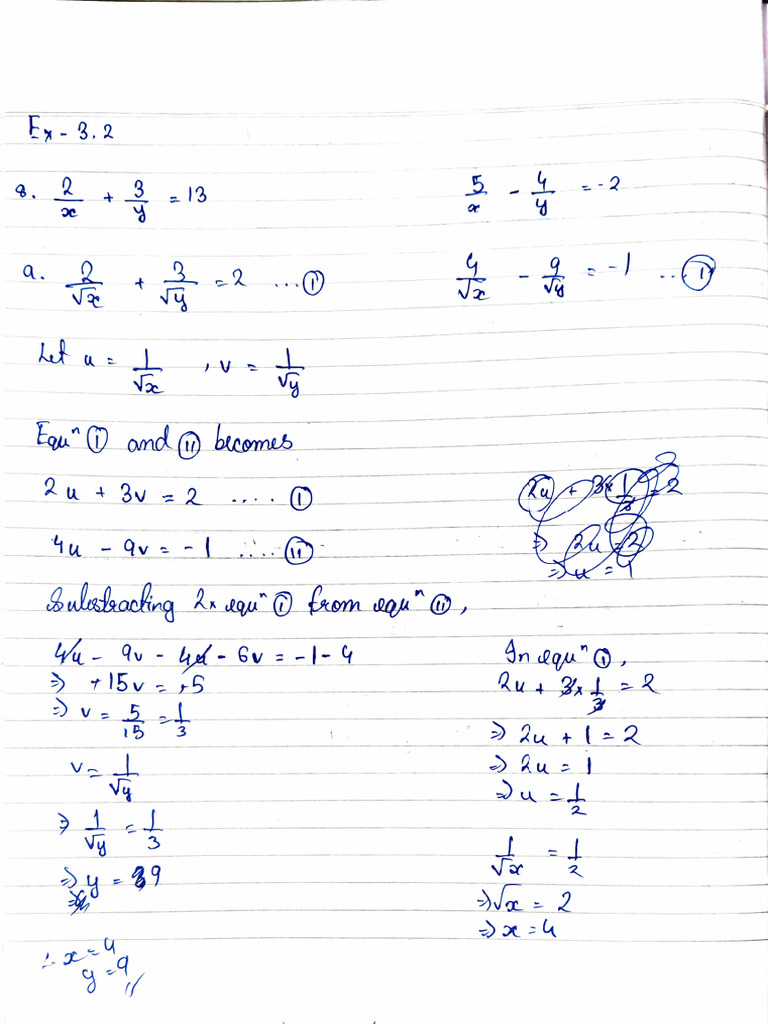 Ex - 3.2
8. 2/x + 3/y = 13    5/x - 4/y = -2
a. 2/√x + 3/√y = 2 ... (i)    4/√x - 9/√y = -1 ... (i)
Let u = 1/√x , v = 1/√y
Equⁿ (i) and (ii) becomes
2u + 3v = 2 .... (i)
4u - 9v = -1 ..... (ii)
Substracting 2× equⁿ (i) from equⁿ (ii),
4u - 9v - 4u - 6v = -1 - 4
⇒ +15v = +5
⇒ v = 5/15 = 1/3
v = 1/√y
⇒ 1/√y = 1/3
⇒ y = 9
∴ x = 4
y = 9 //
2u + 3×1/3 = 2
⇒ 2u = 2
⇒ u = 4
In equⁿ (i),
2u + 3×1/3 = 2
⇒ 2u + 1 = 2
⇒ 2u = 1
⇒ u = 1/2
1/√x = 1/2
⇒ √x = 2
⇒ x = 4